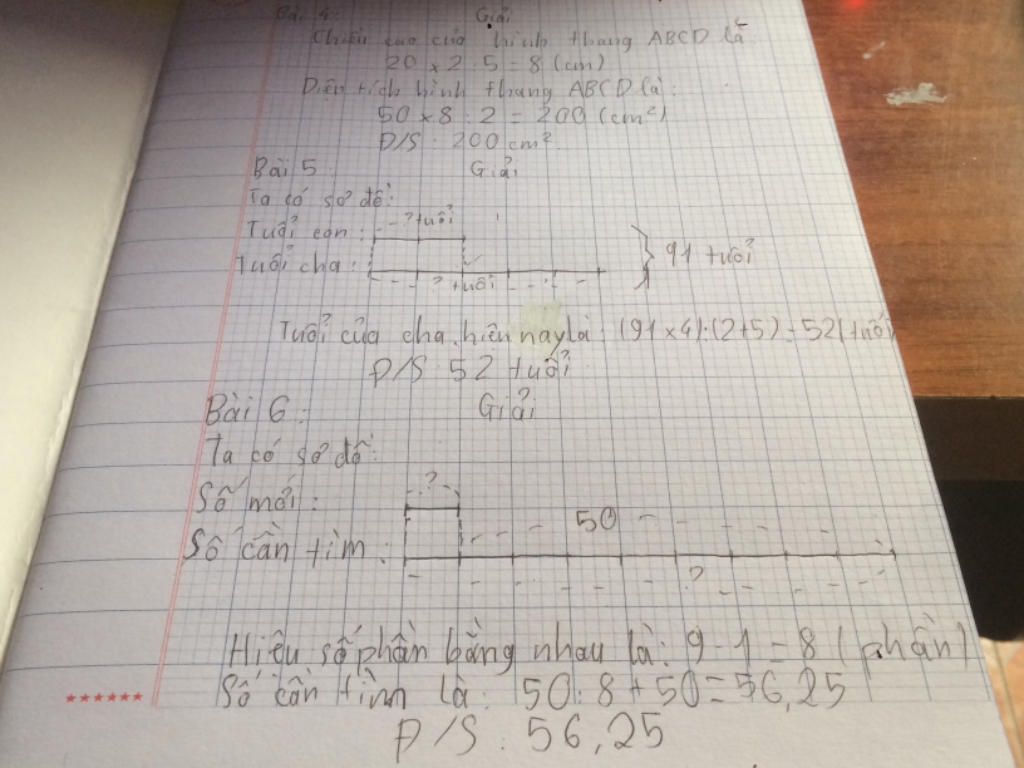 Bài 4: Giải
Chiều cao của hình thang ABCD là
20 x 2 : 5 = 8 (cm)
Diện tích hình thang ABCD là:
50 x 8 : 2 = 200 (cm²)
Đ/S : 200 cm²
Bài 5 Giải
Ta có sơ đồ:
? tuổi
Tuổi con :
Tuổi cha : } 91 tuổi
? tuổi
Tuổi của cha hiện nay là (91 x 4):(2+5) = 52 (tuổi)
Đ/S 52 tuổi
Bài 6 : Giải
Ta có sơ đồ:
?
Số mới :
50
Số cần tìm :
?
Hiệu số phần bằng nhau là: 9 - 1 = 8 (phần)
Số cần tìm là: 50 : 8 + 50 = 56,25
Đ/S : 56,25